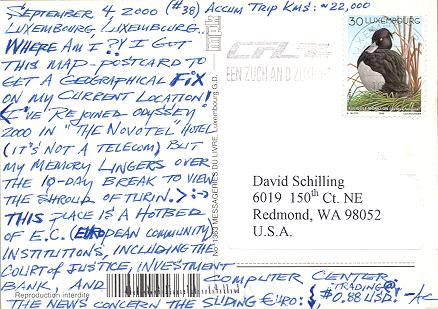 SEPTEMBER 4, 2000 (#38) ACCUM TRIP KMS: ~22,000
LUXEMBOURG, LUXEMBOURG.
WHERE AM I?! I GOT
THIS MAP-POSTCARD TO
GET A GEOGRAPHICAL FIX
ON MY CURRENT LOCATION!
I'VE REJOINED ODYSSEY
2000 IN "THE NOVOTEL" HOTEL
(IT'S NOT A TELECOM) BUT
MY MEMORY LINGERS OVER
THE 10-DAY BREAK TO VIEW
THE SHROUD OF TURIN. >:->
THIS PLACE IS A HOTBED
OF E.C. (EUROPEAN COMMUNITY)
INSTITUTIONS, INCLUDING THE
COURT OF JUSTICE, INVESTMENT
BANK, AND COMPUTER CENTER
THE NEWS CONCERN THE SLIDING €URO: {TRADING @ $0.88 USD! -AC
mpk
No 1363 MESSAGERIES DU LIVRE, Luxembourg G.D.
Reproduction interdite
CFL
EEN ZUCH AN D'ZU
30 LUXEMBOURG
David Schilling
6019 150th Ct. NE
Redmond, WA 98052
U.S.A.